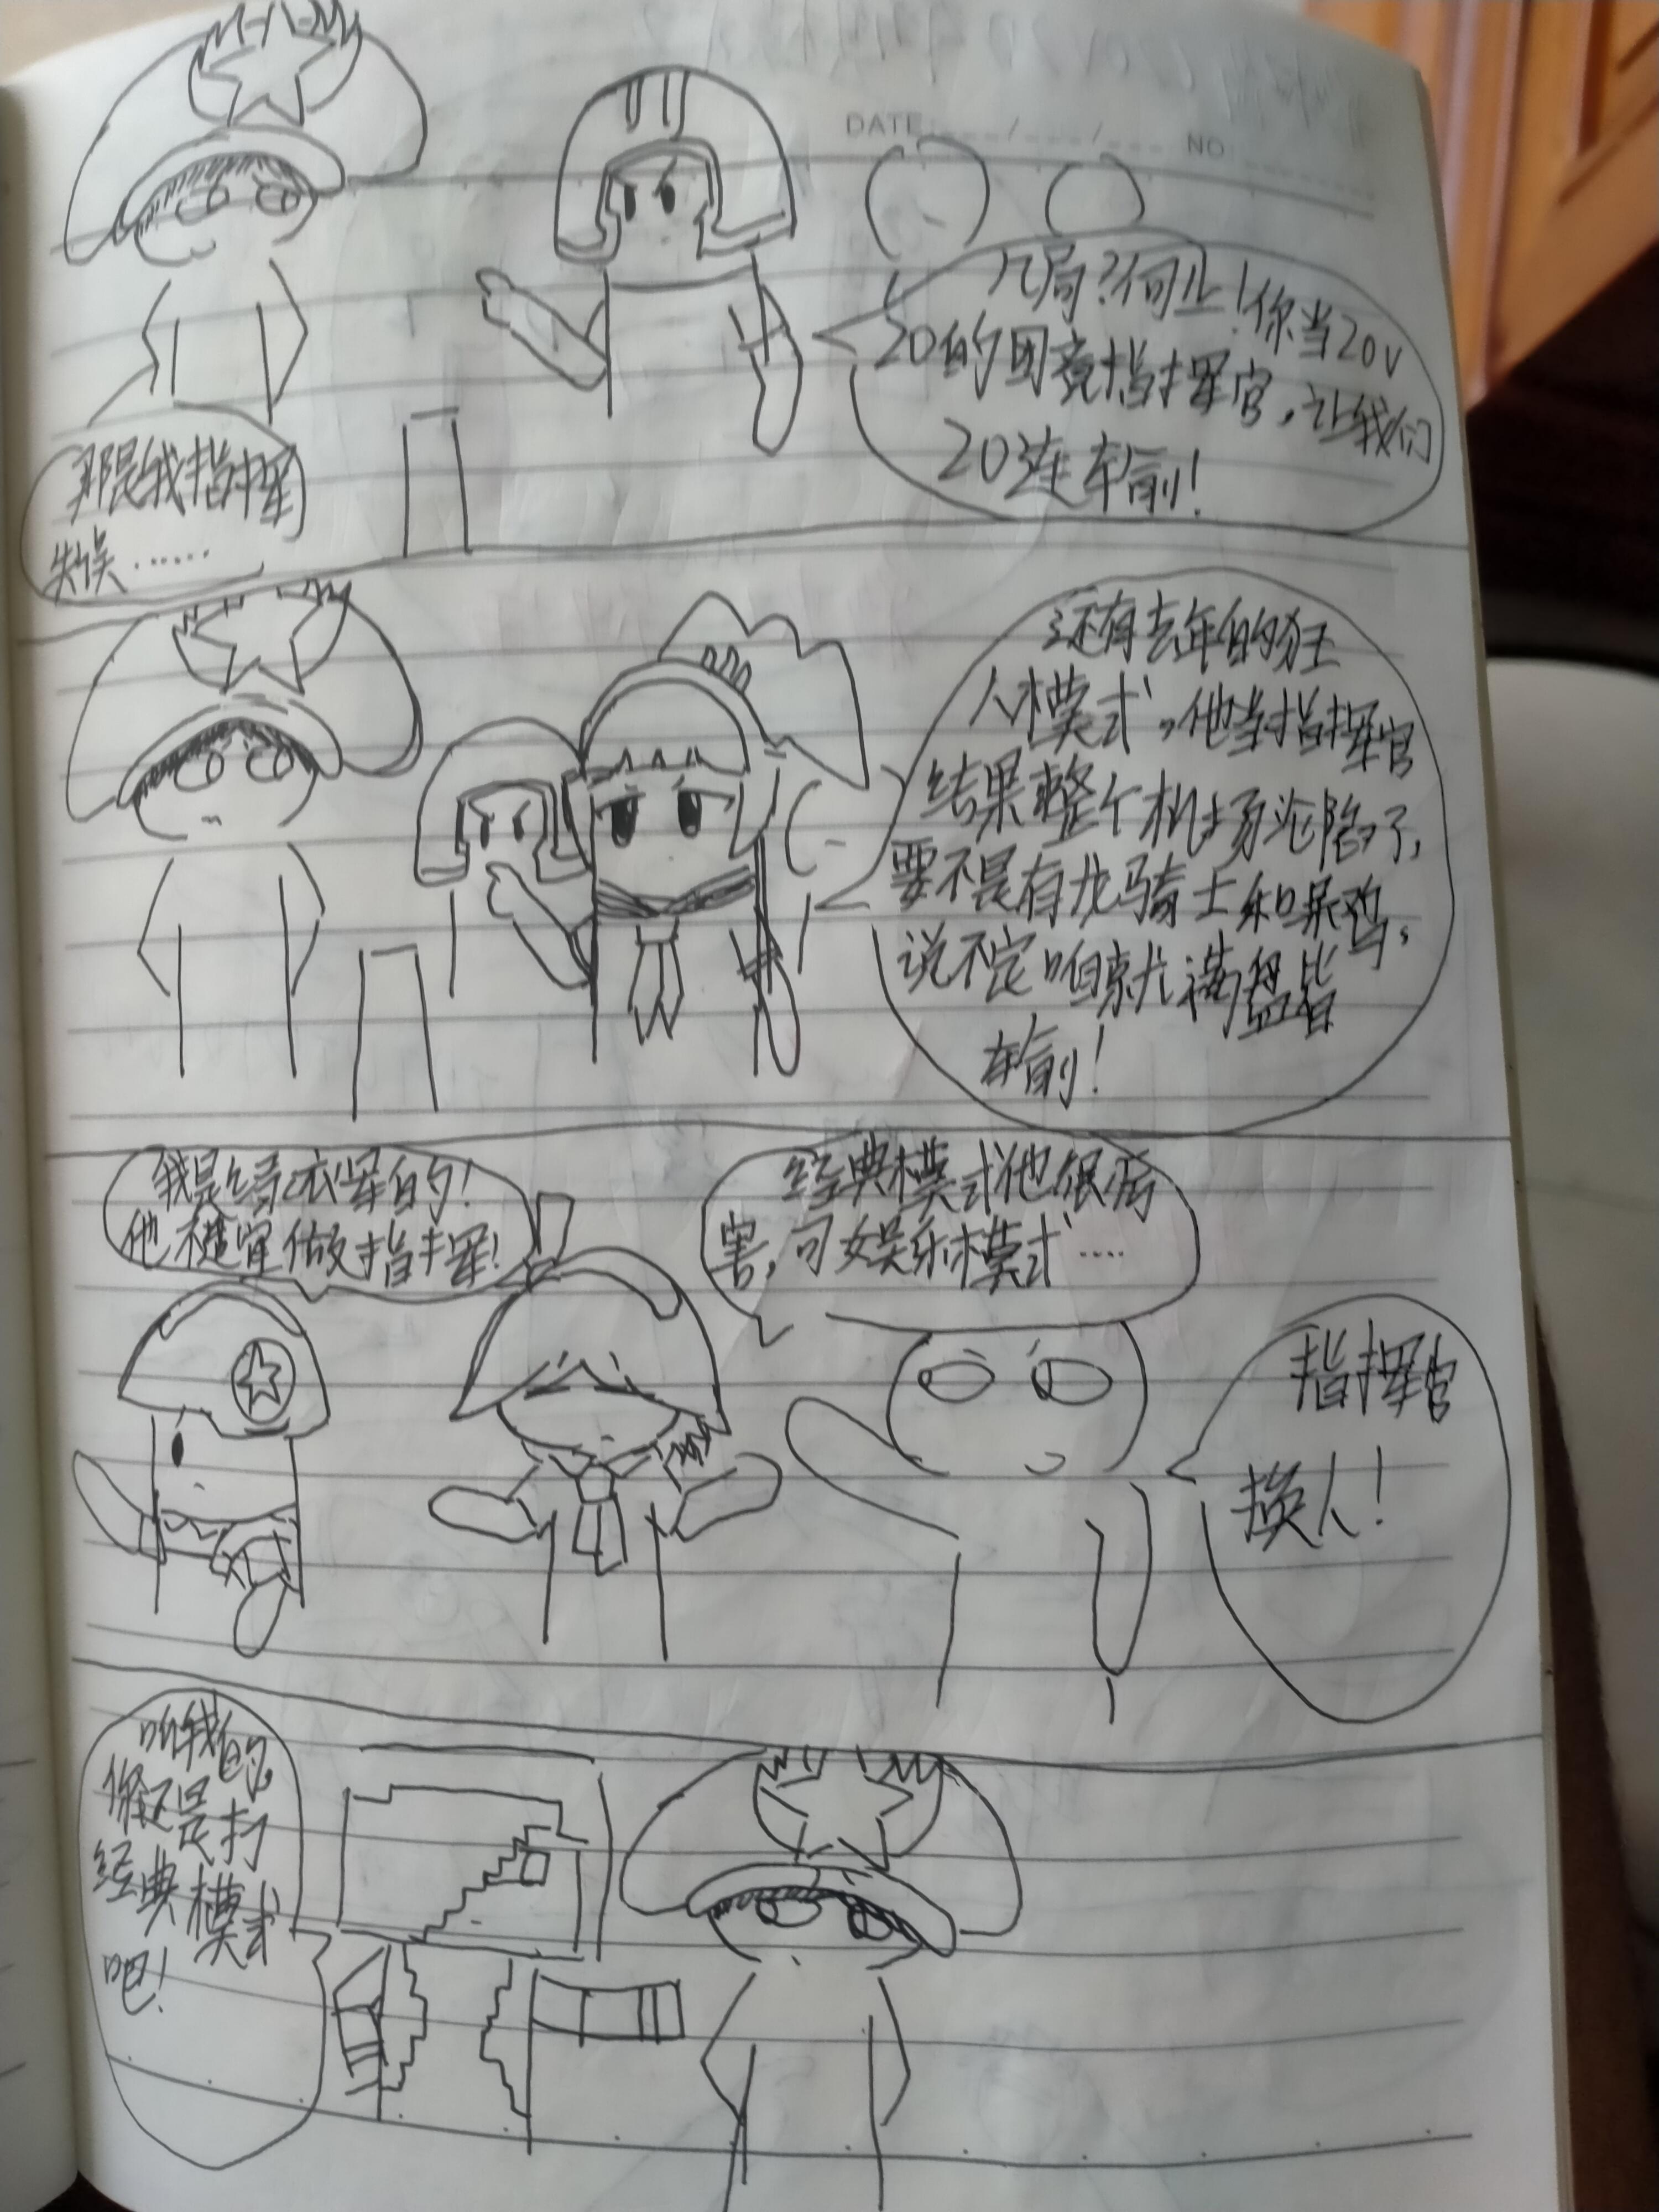 DATE: ___/___/___ NO:
几局?何止!你当20v
20的团竞指挥官,让我们
20连输!
那是我指挥
失误……
还有去年的狂
人模式,他当指挥官
结果整个机场沦陷了,
要不是有龙骑士和呆鸡,
说不定咱就满盘皆
输!
我是绿衣军的!
他不适宜做指挥!
经典模式他很厉
害,可娱乐模式····
指挥官
换人!
听我的
你还是打
经典模式
吧!